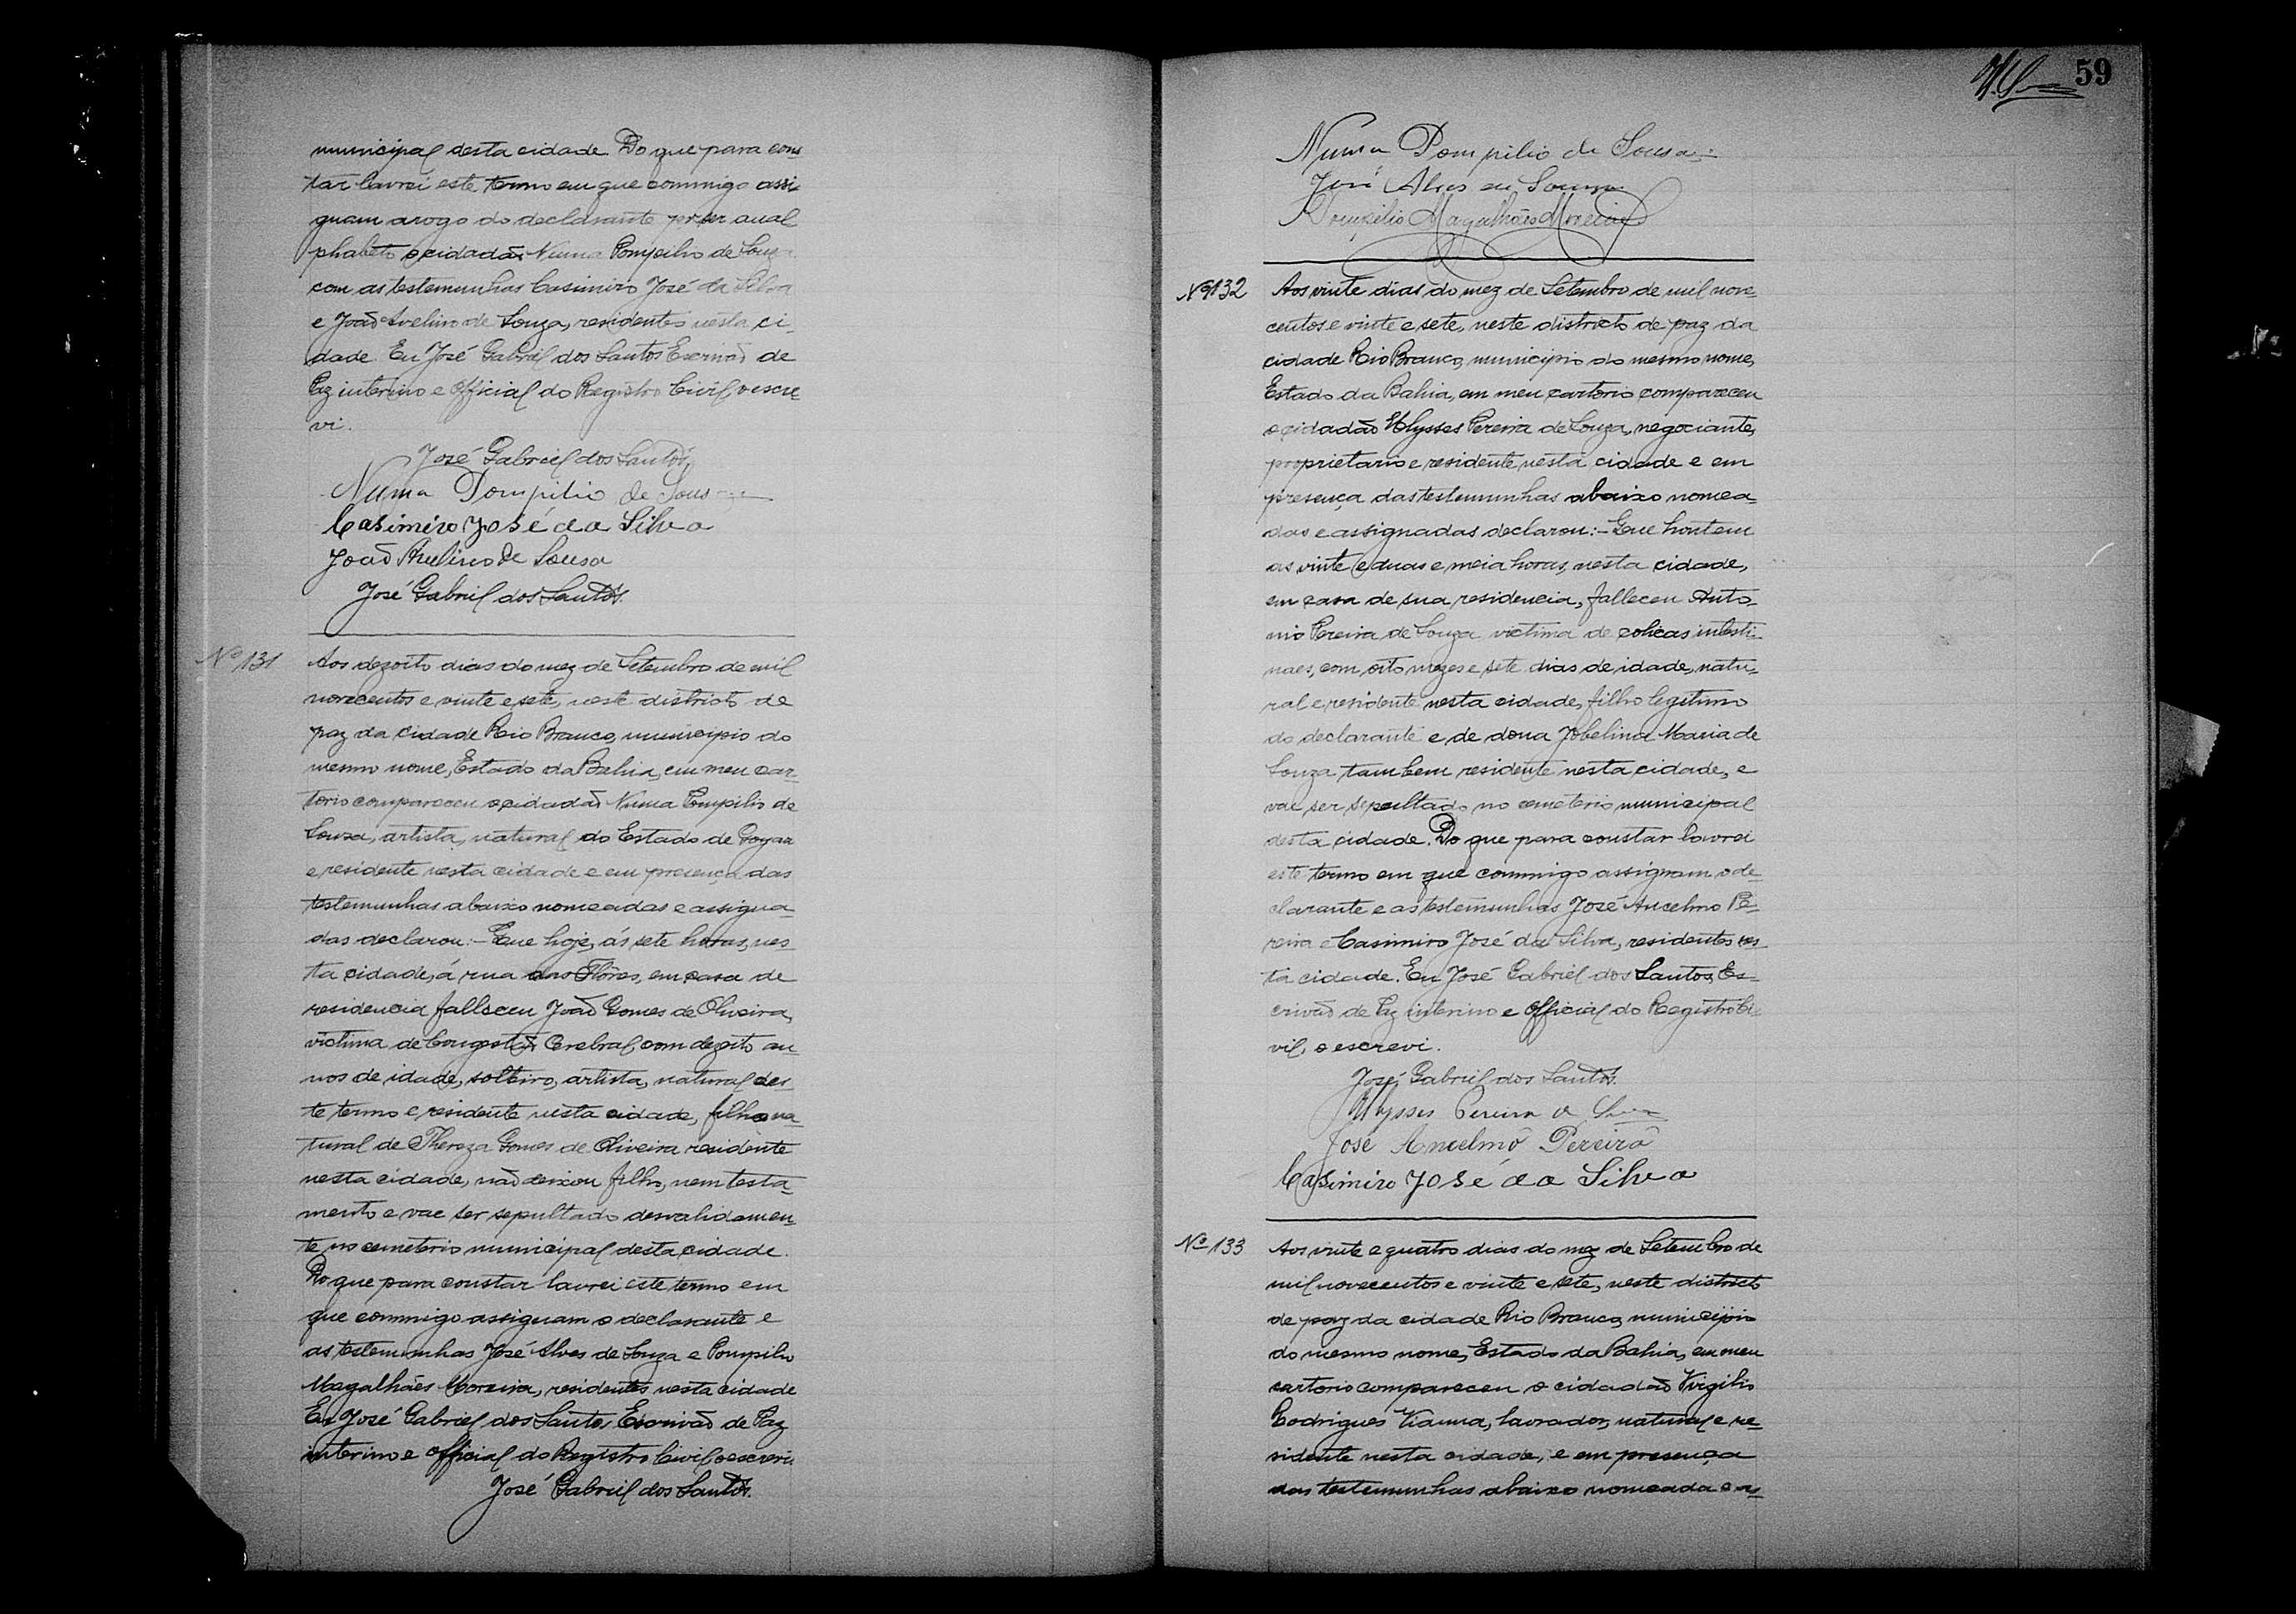 municipal desta cidade. Do que para cons
tar lavrei este termo em que commigo assi
gnam arogo do declarante por ser anal
phabeto o cidadão Numa Pompilio de Souza
com as testemunhas Casimiro José da Silva
e João Avelino de Souza, residentes nesta ci-
dade. Eu José Gabriel dos Santos Escrivão de
Paz interino e Official do Registro Civil o escre
vi.
José Gabriel dos Santos.
Numa Pompilio de Sousa
Casimiro José da Silva
João Avelino de Sousa
José Gabriel dos Santos.
Nº 131
Aos dezoito dias do mez de Setembro de mil
novecentos e vinte e sete, neste districto de
paz da cidade Rio Branco, municipio do
mesmo nome, Estado da Bahia, em meu car-
torio compareceu o cidadão Numa Pompilio de
Souza, artista, natural do Estado de Goyaz
e residente nesta cidade e em presença das
testemunhas abaixo nomeadas e assigna-
das declarou:- Que hoje, ás sete horas, nes
ta cidade, á rua das Flôres, em casa de
residencia falleceu João Gomes de Oliveira,
victima de Congestão Cerebral com dezoito an-
nos de idade, solteiro, artista, natural des-
te termo e residente nesta cidade, filho na-
tural de Thereza Gomes de Oliveira residente
nesta cidade, não deixou filho, nem testa-
mento e vae ser sepultado desvalidamen-
te no cemeterio municipal desta cidade.
Do que para constar lavrei este termo em
que commigo assignam o declarante e
as testemunhas José Alves de Souza e Pompilio
Magalhães Moreira, residentes nesta cidade
Eu José Gabriel dos Santos, Escrivão de Paz
interino e Official do Registro Civil o escrevi
José Gabriel dos Santos.
59
Numa Pompilio de Sousa
José Alves de Souza
Pompilio Magalhães Moreira
Nº 132
Aos vinte dias do mez de Setembro de mil nove-
centos e vinte e sete, neste districto de paz da
cidade Rio Branco, municipio do mesmo nome,
Estado da Bahia, em meu cartorio compareceu
o cidadão Ulysses Pereira de Souza, negociante,
proprietario e residente nesta cidade e em
presença das testemunhas abaixo nomea-
das e assignadas declarou:- Que hontem
as vinte e duas e meia horas, nesta cidade,
em casa de sua residencia, falleceu Anto-
nio Pereira de Souza victima de colicas intesti-
naes, com oito mezes e sete dias de idade, natu-
ral e residente nesta cidade, filho legitimo
do declarante e de dona Jobelina Maria de
Souza tambem residente nesta cidade, e
vae ser sepultado no cemeterio municipal
desta cidade. Do que para constar lavrei
este termo em que commigo assignam o de-
clarante e as testemunhas José Ancelmo Pe-
reira e Casimiro José da Silva, residentes nes-
ta cidade. Eu José Gabriel dos Santos, Es-
crivão de Paz interino e Official do Registro Ci-
vil, o escrevi.
José Gabriel dos Santos.
Ulysses Pereira de Souza
José Ancelmo Pereira
Casimiro José da Silva
Nº 133
Aos vinte e quatro dias do mez de Setembro de
mil novecentos e vinte e sete, neste districto
de paz da cidade Rio Branco, municipio
do mesmo nome, Estado da Bahia, em meu
cartorio compareceu o cidadão Virgilio
Rodrigues Vianna, lavrador, natural e re-
sidente nesta cidade, e em presença
das testemunhas abaixo nomeada e as-